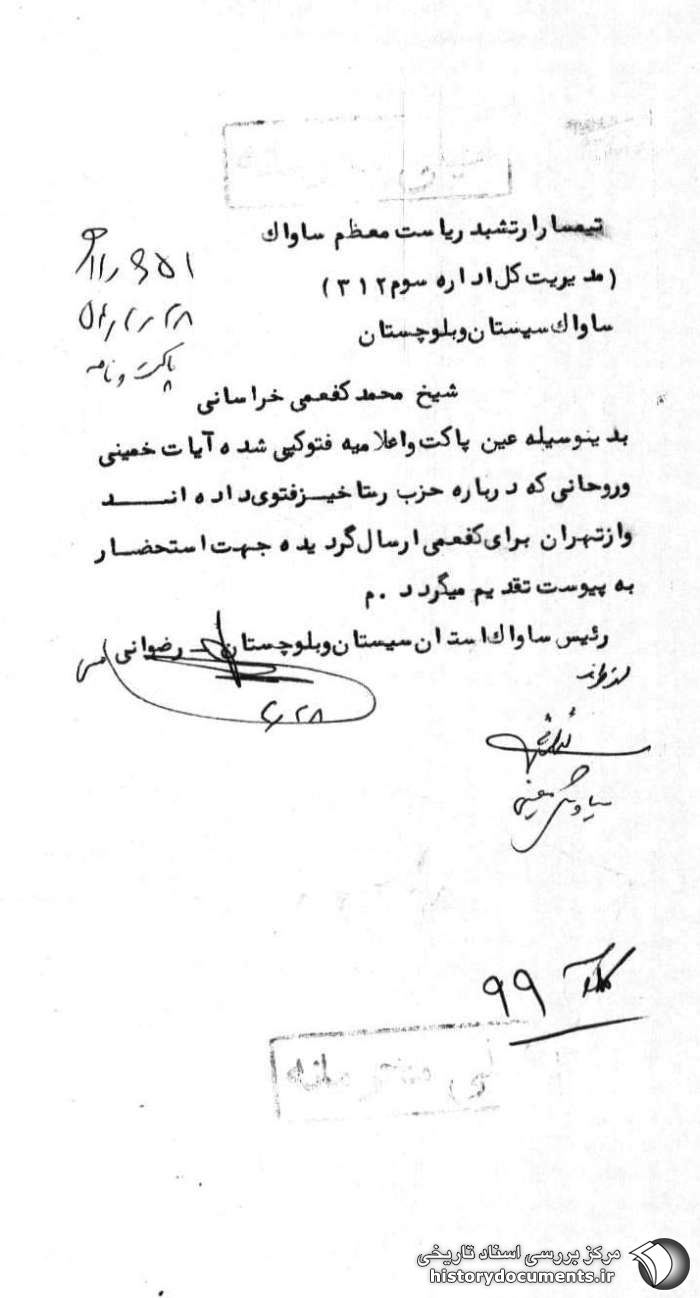 تیمسار ارتشبد ریاست معظم ساواك
(مدیریت کل اداره سوم ۳۱۲)
ساواك سیستان و بلوچستان
۵۴٫۲٫۲۸
پاکت و نامه
شیخ محمد کفعمی خراسانی
بدینوسیله عین پاکت واعلامیه فتوکپی شده آیات خمینی
وروحانی که درباره حزب رستاخیز فتوی داده انـــد
وازتهران برای کفعمی ارسال گردیده جهت استحضـار
به پیوست تقدیم میگردد .م
رئیس ساواك استان سیستان و بلوچستان رضوانی
۲٫۲۸
۹۹
خیلی محرمانه
مرکز بررسی اسناد تاریخی
historydocuments.ir